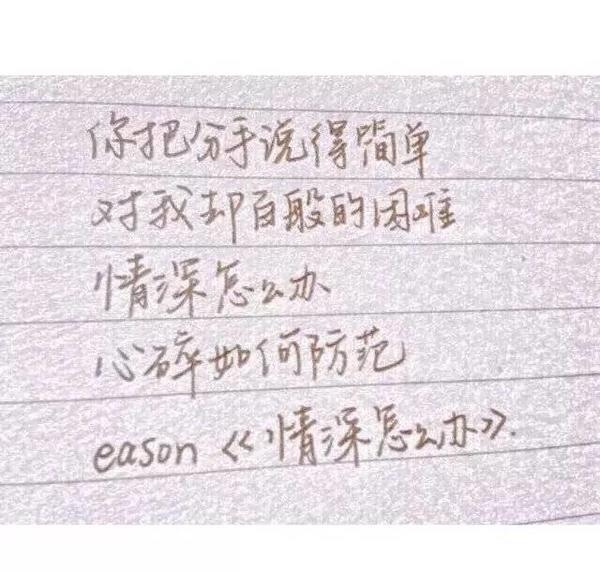 你把分手说得简单
对我却百般的困难
情深怎么办
心碎如何防范
eason《情深怎么办》.